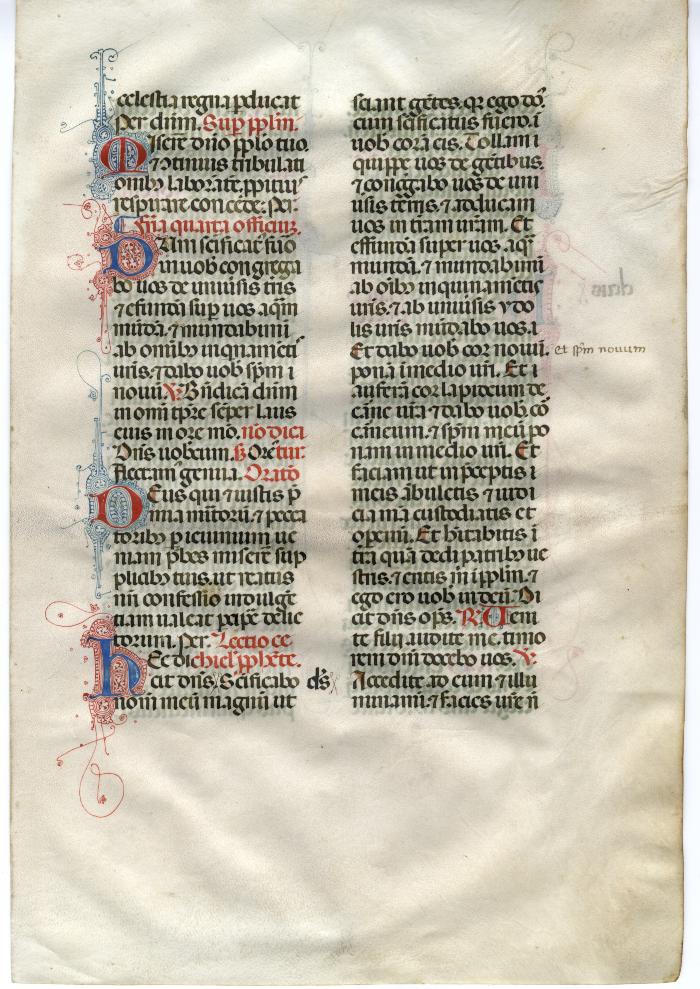 celestia regna pducat
Per dnm. Sup pplm.
Miserē dn̄o pplo tuo.
⁊ ↄtinuis tribulatī
onib; laborāte. ppitiuꝰ
respirare concede. Per.
Fria quarta officium.
Dum scificat' fūo
in uob' congrega
bo uos de uniuisis tr̄is
⁊ effunda sup uos aq̄m
mūdā. ⁊ mundabimī
ab omīb; inqnamētī
uris. ⁊ dabo uob' sp̄m ī
nouū. V. Bn̄dicā dnm
in omī tpr̄e sēper laus
eius in ore mō. nō dicī
Dn̄s uobcum. s; Ore tm̄.
Flectam' genua. Oratō
Deus qui ⁊ iustis p̄
mia mītorū. ⁊ pecca
torib; p ieiunium ue
niam p̄bes miserē sup
plicib; tuis. ut reatus
nr̄i confessio indulgē
tiam ualeat pcipe delic
torum. Per. Lectio eze
chiel' pp̄hete.
Hec dicit dn̄s. Sc̄ificabo
nom̄ meū magnū ut
ds̄
sciant gētes. qr ego dn̄s
cum sc̄ificatus fuero. ī
uob' corā eis. Tollam ī
quippe uos de gētibus
⁊ cōgregabo uos de uni
uisis terris. ⁊ adducam
uos in trām uram. Et
effundā super uos aq̄
mundā. ⁊ mundabimī
ab oīb; inquinamētis
uris. ⁊ ab uniuisis ydo
lis uris mūdabo uos. ī
Et dabo uob' cor nouū.
et sp̄m nouum
ponā ī medio uri. Et ī
auferā cor lapideum de
carne ura ⁊ dabo uob' cō
carneum. ⁊ sp̄m meū po
nam in medio uri. Et
faciam ut in pceptis ī
meis ābuletis ⁊ iudi
cia mea custodiatis et
opemī. Et hītabitis ī
trā quā dedi patrib; ue
stris. ⁊ eritis m̄ ī pplm. ⁊
ego ero uob' in deū. Di
cit dn̄s op̄s. R. Ueni
te filii audite me. timo
rem dn̄i docebo uos. V.
Accedite ad eum ⁊ illu
minamī. ⁊ facies ure n̄